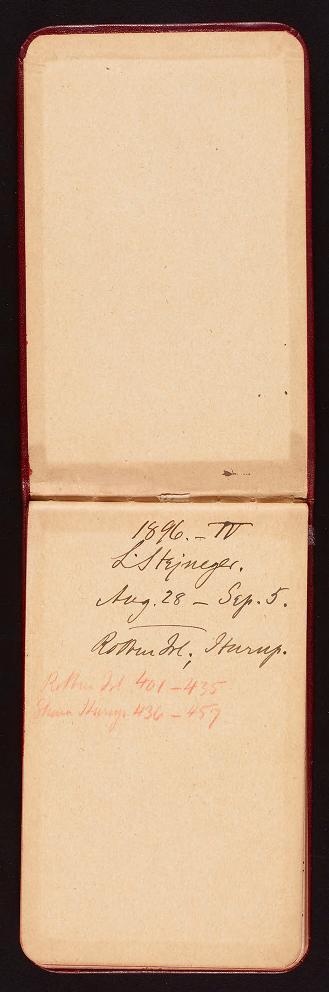 1896. – IV
L. Stejneger.
Aug. 28 – Sep. 5.
Robben Isl., Iturup.
Robben Isl 401 – 435
Shana Iturup 436 – 457